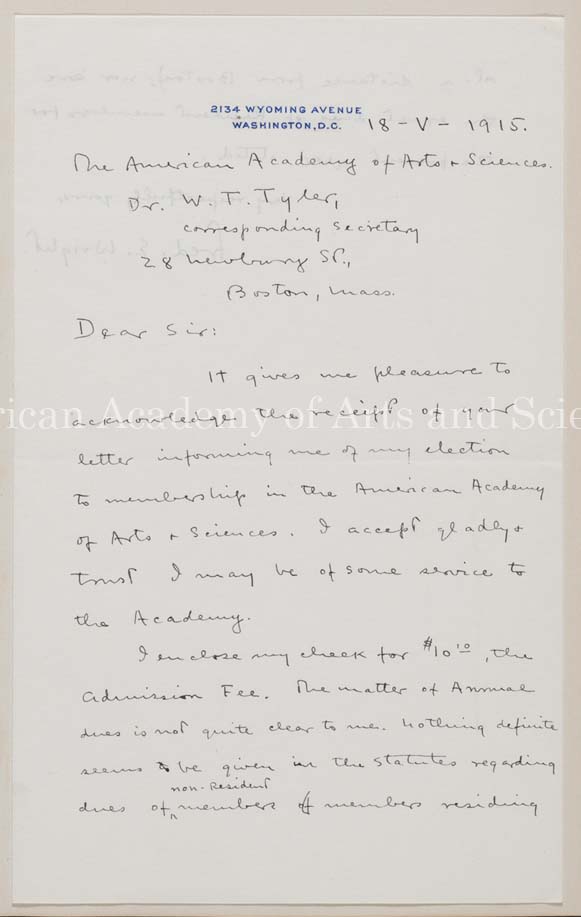 2134 WYOMING AVENUE
WASHINGTON, D.C. 18-V-1915.
The American Academy of Arts + Sciences.
Dr. W. T. Tyler,
corresponding secretary
28 Newbury St.,
Boston, Mass.
Dear Sir:
It gives me pleasure to
acknowledge the receipt of your
letter informing me of my election
to membership in the American Academy
of Arts + Sciences. I accept gladly +
trust I may be of some service to
the Academy.
I enclose my check for $10 10, the
Admission Fee. The matter of Annual
dues is not quite clear to me. Nothing definite
seems to be given in the statutes regarding
non-Resident
dues of members of members residing
rican Academy of Arts and Scie